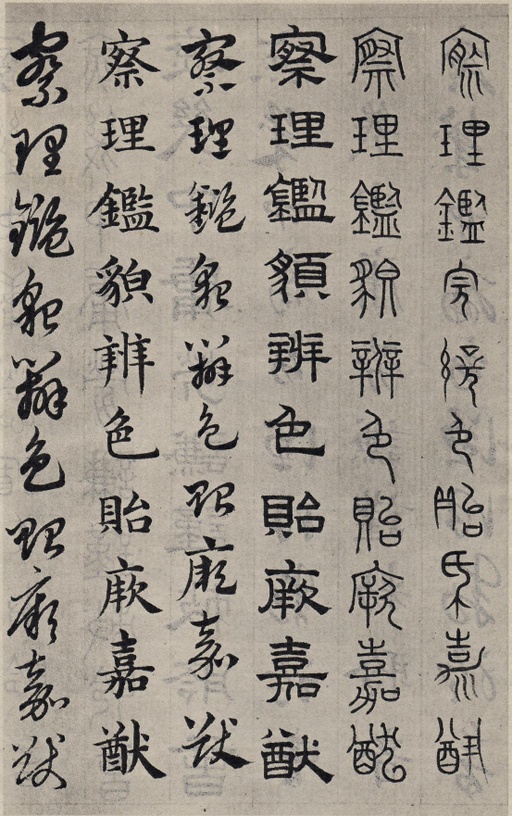 察理鑑皃辨色貽氒嘉猷
察理鑑貌辨色貽厥嘉猷
察理鑑貌辨色貽厥嘉猷
察理鑑皃辨色貽厥嘉猷
察理鑑貌辨色貽厥嘉猷
察理鑑皃辨色貽厥嘉猷